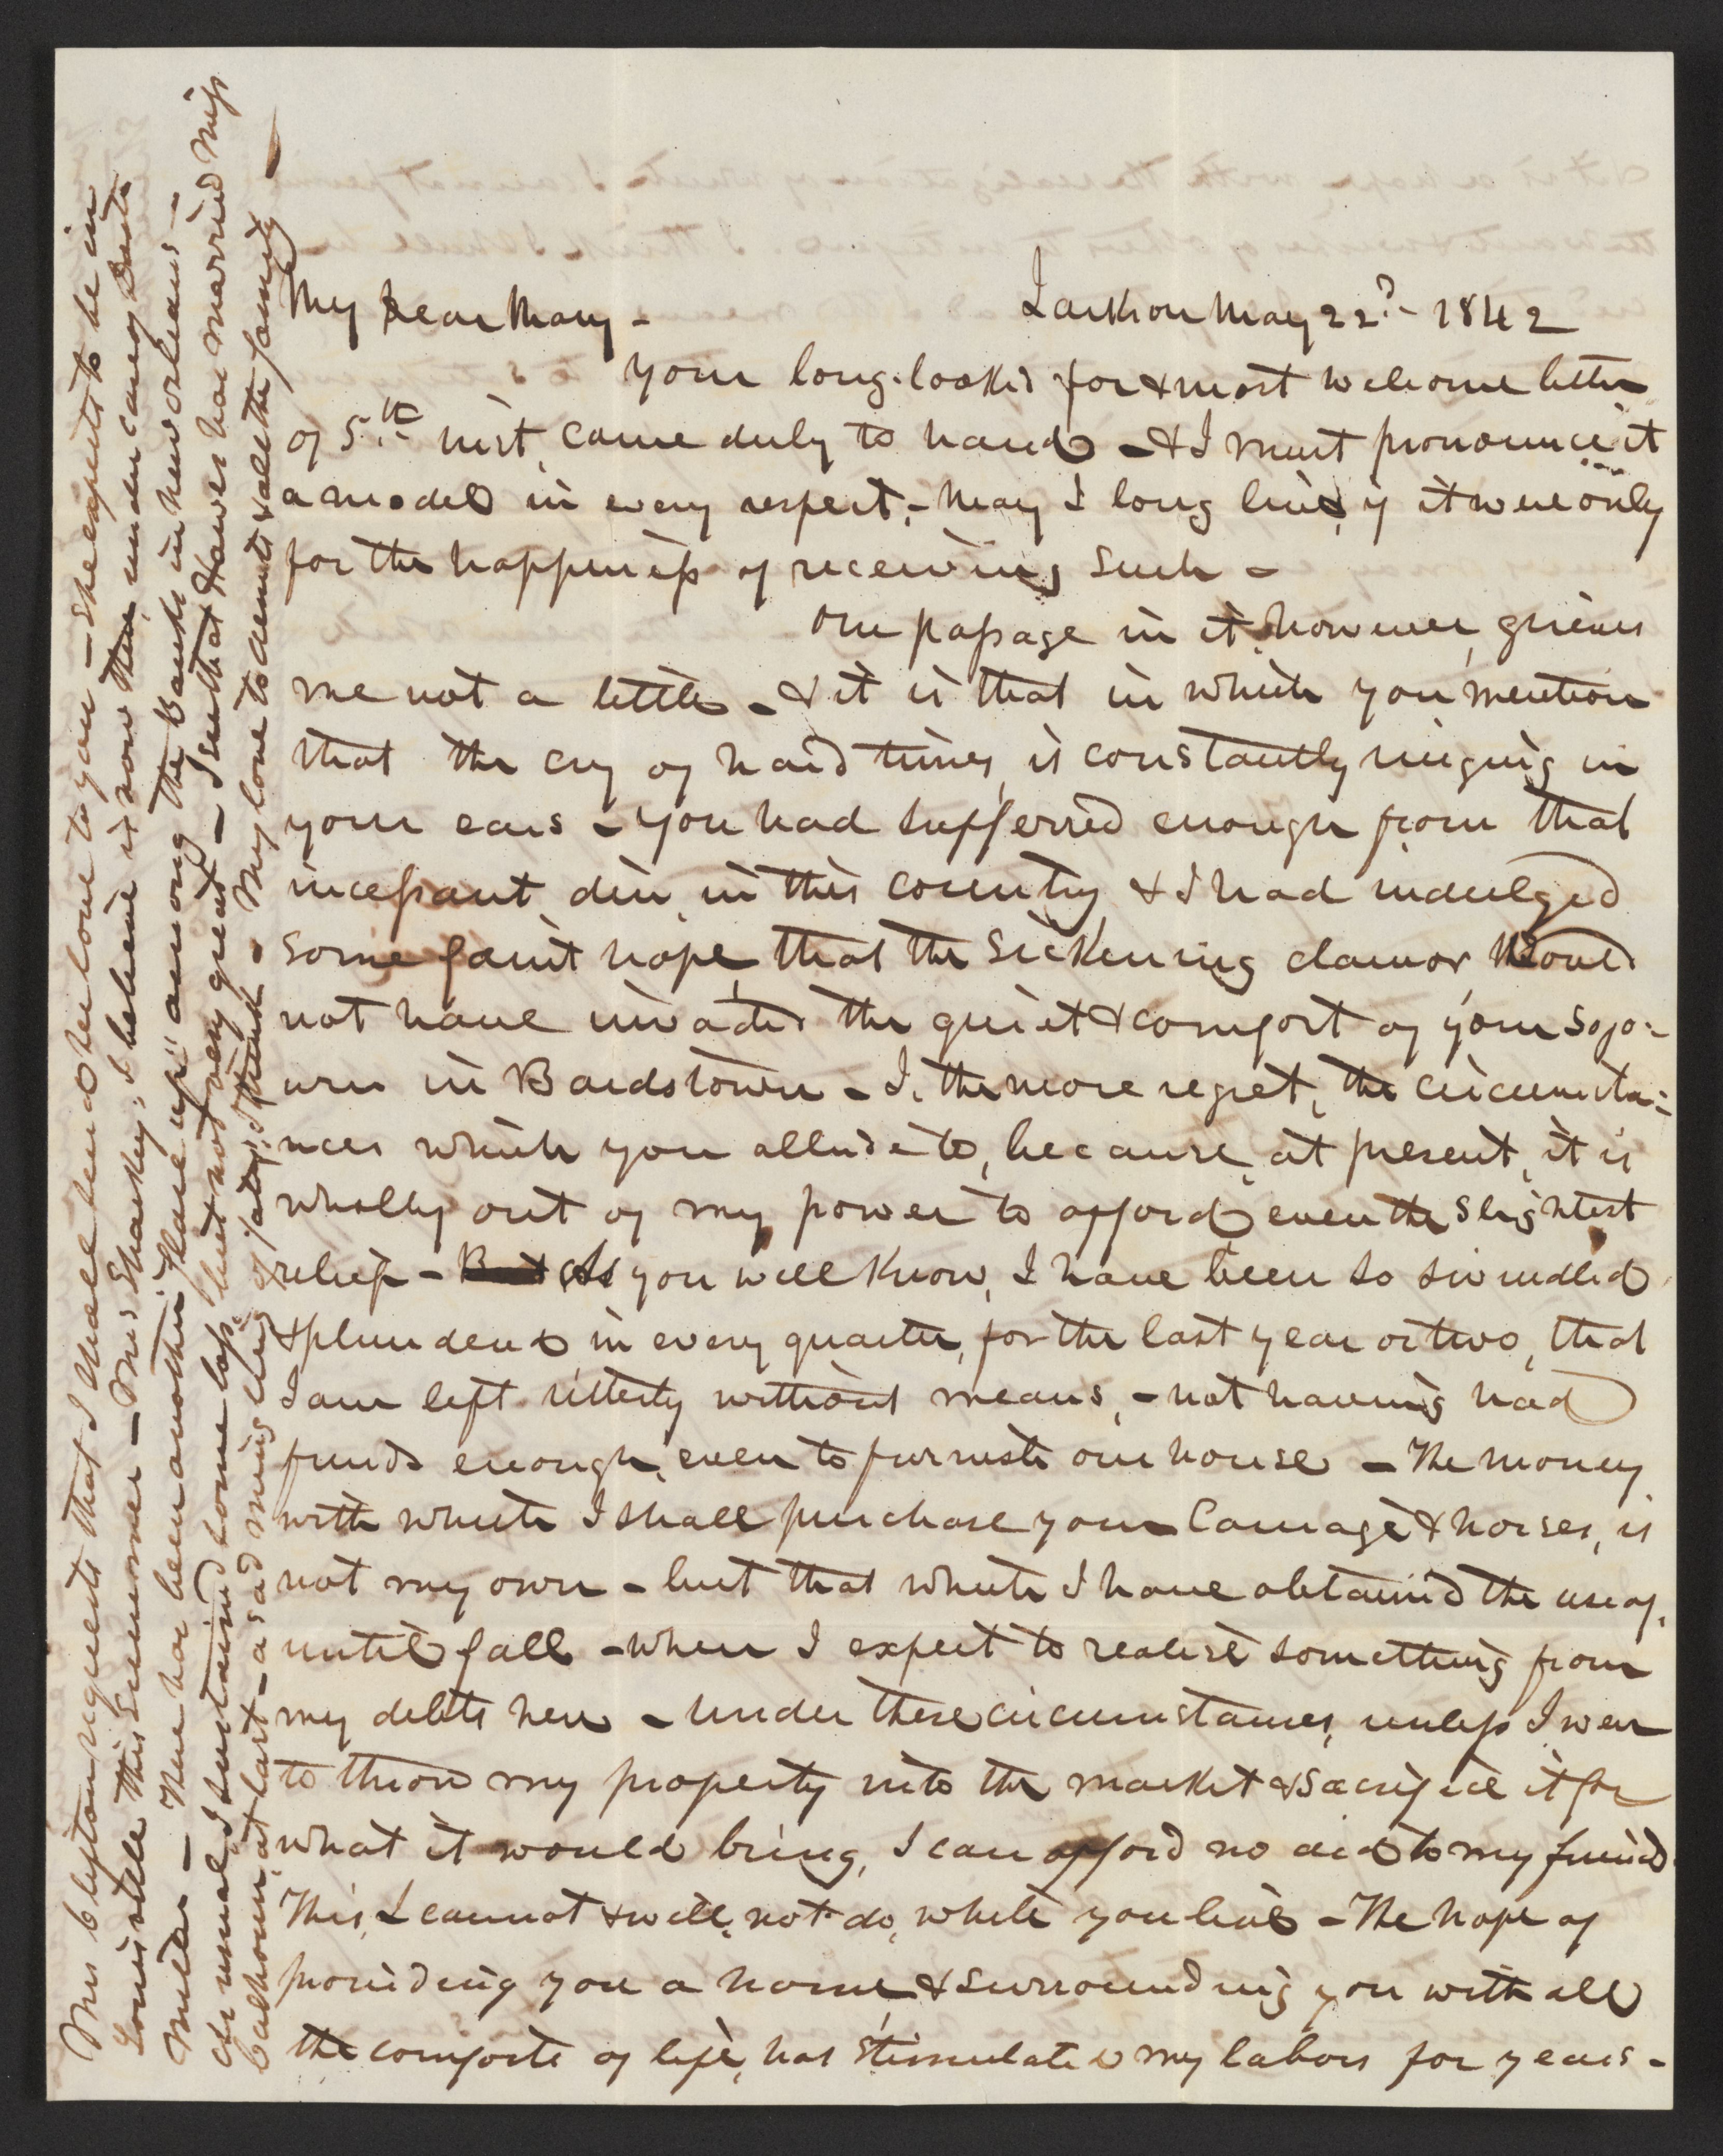 My Dear Mary - Jackson May 22d - 1842
Your long-looked for & most welcome letter
of 5th inst, came duly to hand - & I must pronounce it
a model in every respect, - May I long live, if it were only
for the happiness of receiving such -
One passage in it, however, grieves
me not a little - & it is that in which you mention
that the cry of hard times, is constantly ringing in
your ears - you had sufferred enough from that
incessant din, in this country & I had indulged
some faint hope, that the sickening clamor would
not have invaded the quiet & comfort of your sojo-
urn in Bardstown - I, the more regret, the circumsta-
nces which you allude to, because, at present, it is
wholly out of my power to afford even the slightest
relief - But As you well know, I have been so swindled
& plundered in every quarter, for the last year or two, that
I am left utterly without means, - not having had
funds enough, even to furnish our house - The money
with which I shall purchase your Carriage & horses, is
not my own - but that which I have obtained the use of,
until fall - when I expect to realise something from
my debts here - Under these circumstances, unless I were
to throw my property into the market & sacrifice it for
what it would bring, I can afford no aid to my friend
This, I cannot & will, not do, while you live - The hope of
providing you a home, & surrounding you with all
the comforts of life, has stimulated my labors for years -
Mrs Clifton requests that I shall send her love to you - She expects to be in
Louisville this Summer - Mrs Sharkey, I believe is now there, under care of Doctr
Miller - There has been another "flare up" among the Banks in New Orleans -
As usual, I sustained some loss, but not very great - I see that Hawes has married Miss
Calhoun, at last - a sad mingling of fates, I think - My love to aunts & all the family -